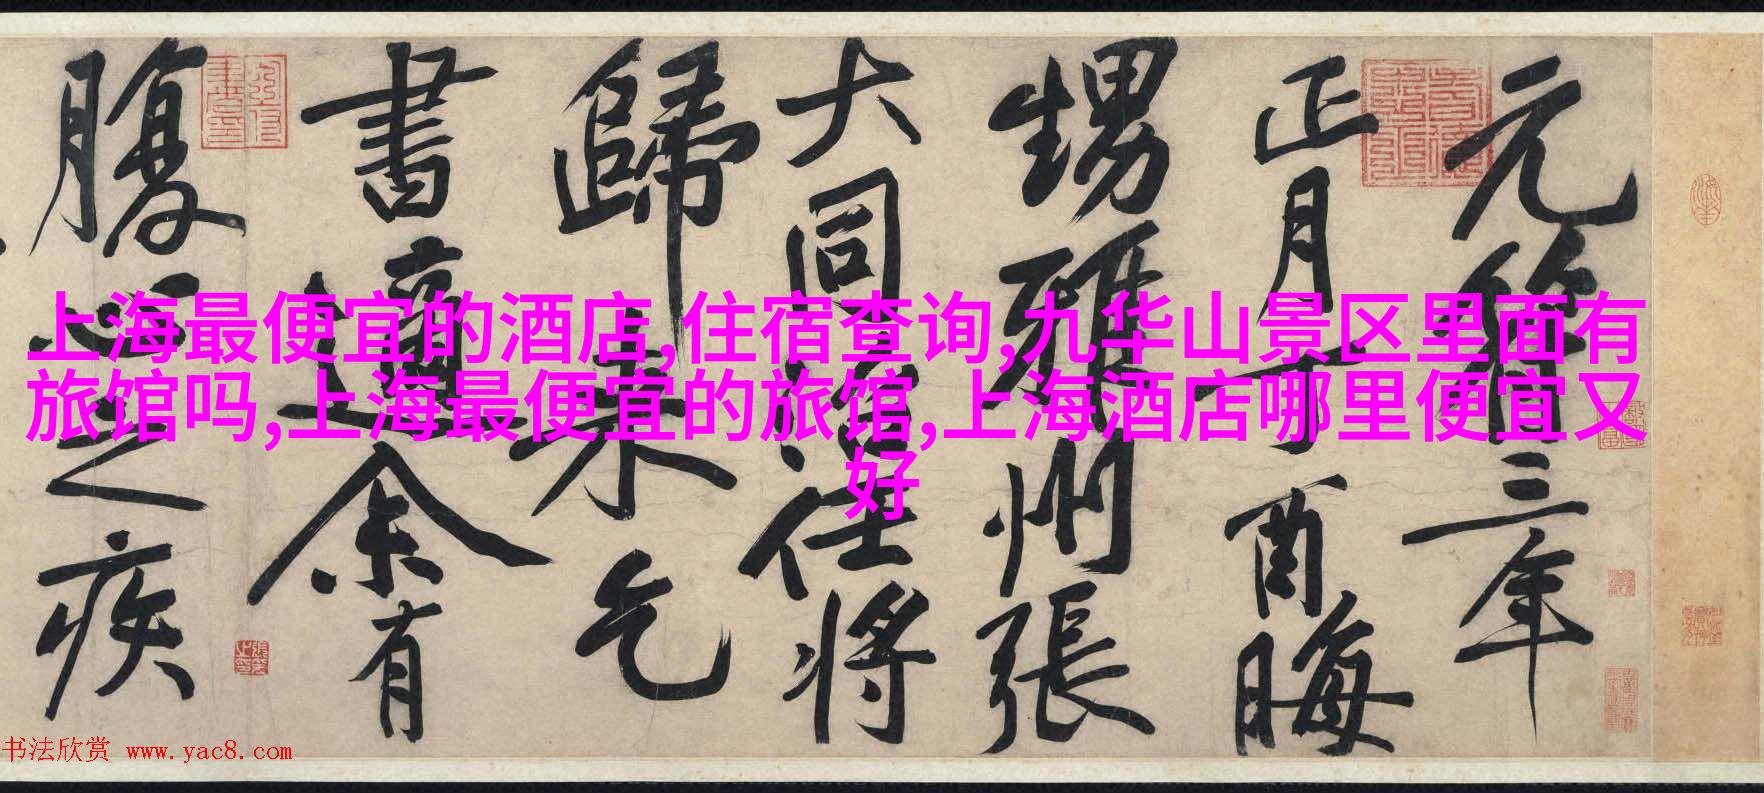 上海最便宜的酒店,住宿查询,九华山景区里面有
旅馆吗,上海最便宜的旅馆,上海酒店哪里便宜又
好
元符三年
正月丁酉晦
甥雅州張
大同治任將
歸來乞
書適余有
腹心之疾
书法欣赏 www.yac8.com